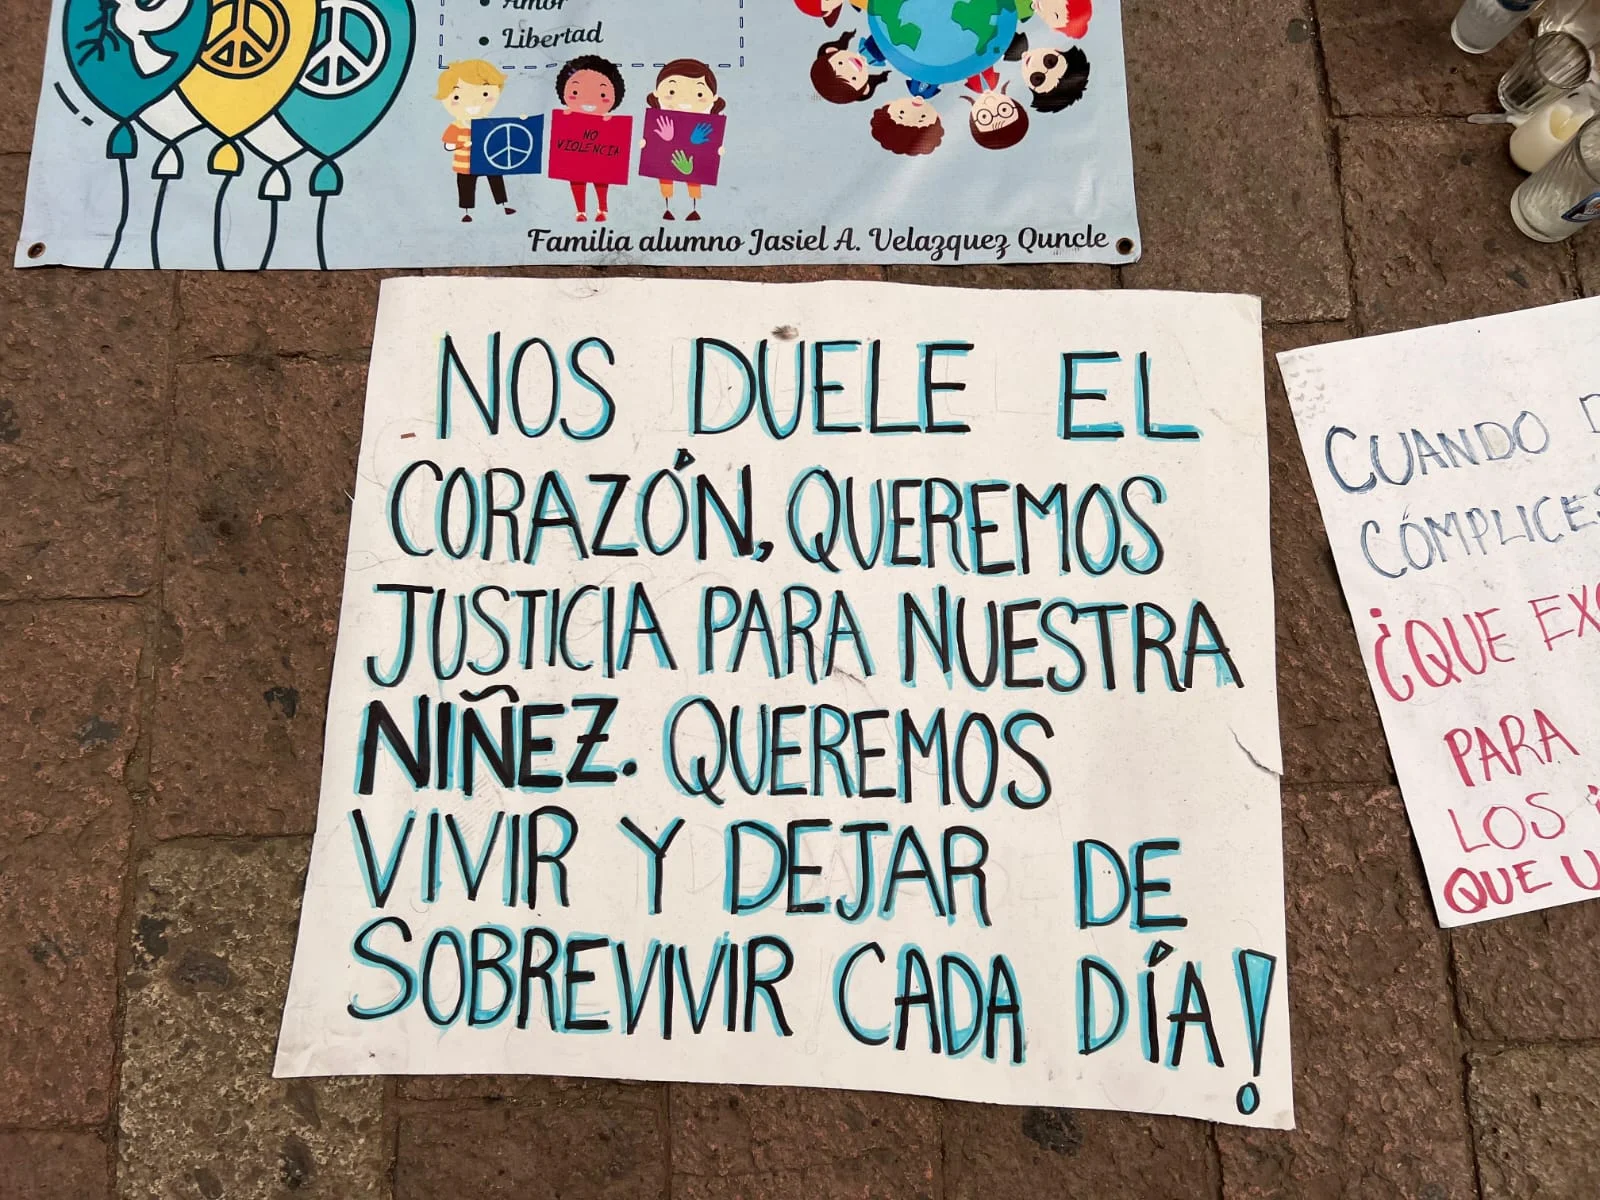 • Amor
• Libertad
NO
VIOLENCIA
Familia alumno Jasiel A. Velazquez Quncle
NOS DUELE EL
CORAZÓN, QUEREMOS
JUSTICIA PARA NUESTRA
NIÑEZ. QUEREMOS
VIVIR Y DEJAR DE
SOBREVIVIR CADA DÍA!
CUANDO
CÓMPLICES
¿QUE
PARA
LOS
QUE